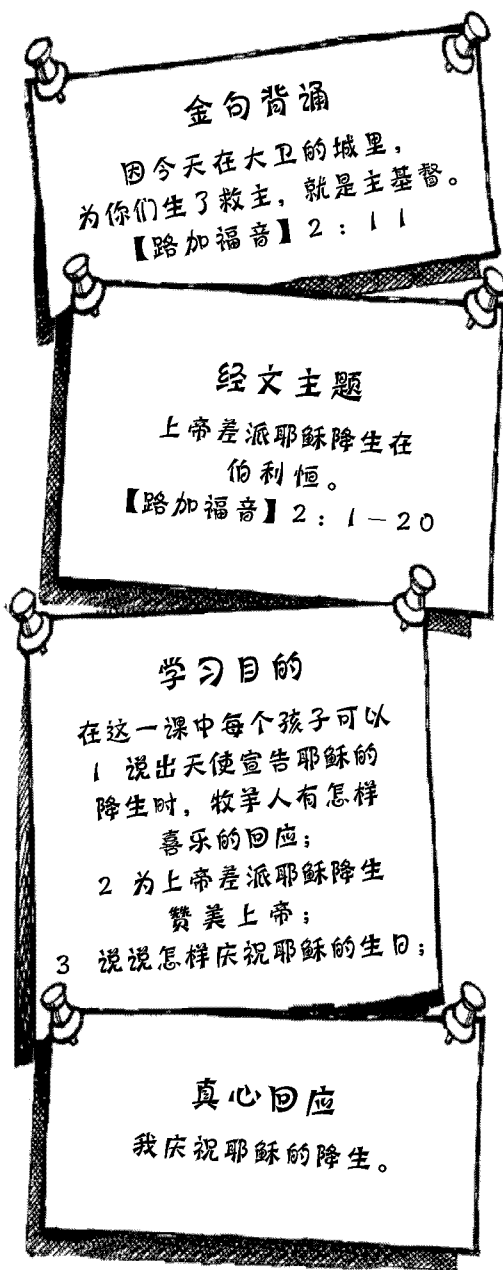 金句背诵
因今天在大卫的城里，
为你们生了救主，就是主基督。
【路加福音】2：11
经文主题
上帝差派耶稣降生在
伯利恒。
【路加福音】2：1－20
学习目的
在这一课中每个孩子可以
1 说出天使宣告耶稣的
降生时，牧羊人有怎样
喜乐的回应；
2 为上帝差派耶稣降生
赞美上帝；
3 说说怎样庆祝耶稣的生日；
真心回应
我庆祝耶稣的降生。